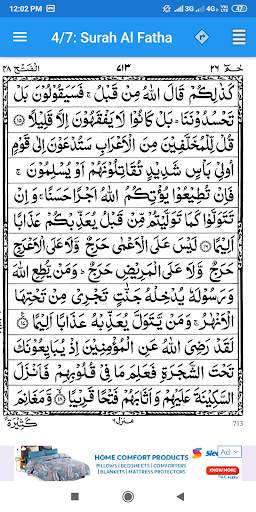 12:02 PM
4G 3G 47
4/7: Surah Al Fatha
الفتح ٤٨
٥١٣
حم ٢٦
كَذٰلِكُمْ قَالَ اللّٰهُ مِنْ قَبْلُ ۚ فَسَيَقُوْلُوْنَ بَلْ
تَحْسُدُوْنَنَا ؕ بَلْ كَانُوْا لَا يَفْقَهُوْنَ اِلَّا قَلِيْلًا ﴿۱۵﴾
قُلْ لِّلْمُخَلَّفِيْنَ مِنَ الْاَعْرَابِ سَتُدْعَوْنَ اِلٰى قَوْمٍ
اُولِيْ بَاْسٍ شَدِيْدٍ تُقَاتِلُوْنَهُمْ اَوْ يُسْلِمُوْنَ ۚ
فَاِنْ تُطِيْعُوْا يُؤْتِكُمُ اللّٰهُ اَجْرًا حَسَنًا ۚ وَ اِنْ
تَتَوَلَّوْا كَمَا تَوَلَّيْتُمْ مِّنْ قَبْلُ يُعَذِّبْكُمْ عَذَابًا
اَلِيْمًا ﴿۱۶﴾ لَيْسَ عَلَى الْاَعْمٰى حَرَجٌ وَّلَا عَلَى الْاَعْرَجِ
حَرَجٌ وَّلَا عَلَى الْمَرِيْضِ حَرَجٌ ؕ وَمَنْ يُّطِعِ اللّٰهَ
وَرَسُوْلَهٗ يُدْخِلْهُ جَنّٰتٍ تَجْرِيْ مِنْ تَحْتِهَا
الْاَنْهٰرُ ۚ وَمَنْ يَّتَوَلَّ يُعَذِّبْهُ عَذَابًا اَلِيْمًا ﴿۱۷﴾
لَقَدْ رَضِيَ اللّٰهُ عَنِ الْمُؤْمِنِيْنَ اِذْ يُبَايِعُوْنَكَ
تَحْتَ الشَّجَرَةِ فَعَلِمَ مَا فِيْ قُلُوْبِهِمْ فَاَنْزَلَ
السَّكِيْنَةَ عَلَيْهِمْ وَاَثَابَهُمْ فَتْحًا قَرِيْبًا ﴿۱۸﴾ وَّمَغَانِمَ
كَثِيْرَةً
منزل ٦
713
HOME COMFORT PRODUCTS
PILLOWS | BEDSHEETS | COMFORTERS
BLANKETS | MATTRESS PROTECTORS
Ad
KNOW MORE